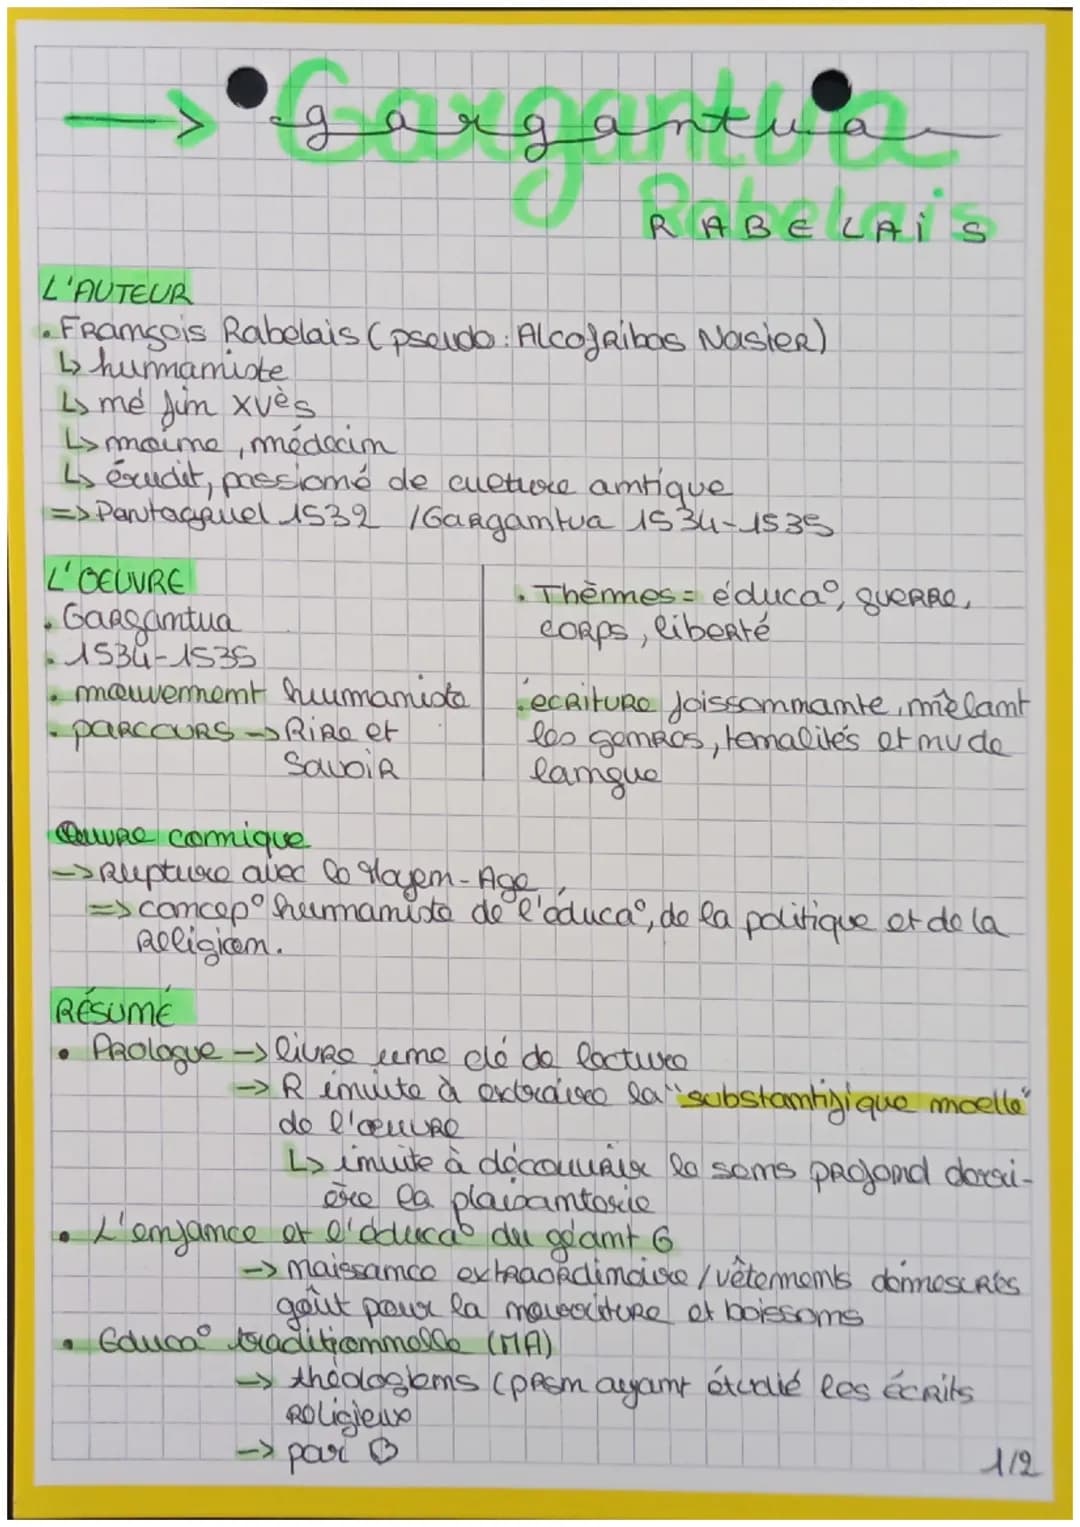 → Gargantua
RABELAIS
L'AUTEUR
• François Rabelais (pseudo : Alcofribas Nasier)
↳ humaniste
↳ né fin XVès
↳ moine, médecin
↳ érudit, passioné de culture antique
=> Pantagruel 1532 / Gargantua 1534-1535
L'OEUVRE
• Gargantua
• 1534-1535
• mouvement humaniste
• parcours → Rire et
Savoir
• Thèmes = éduca°, guerre,
corps, liberté
• écriture foissonnante, mêlant
les genres, tonalités et nv de
langue
Œuvre comique
→ Rupture avec le Moyen-Age
=> concep° humaniste de l'éduca°, de la politique et de la
religion.
RÉSUMÉ
• Prologue → livre une clé de lecture
→ R invite à extraire la "substantifique moelle"
de l'œuvre
↳ invite à découvrir le sens profond derri-
ère la plaisanterie
• L'enfance et l'éduca° du géant G
→ naissance extraordinaire / vêtements démesurés
goût pour la nourriture et boissons
• Educa° traditionnelle (MA)
→ théologiens (prsn ayant étudié les écrits
religieux
→ par ♡
1/2